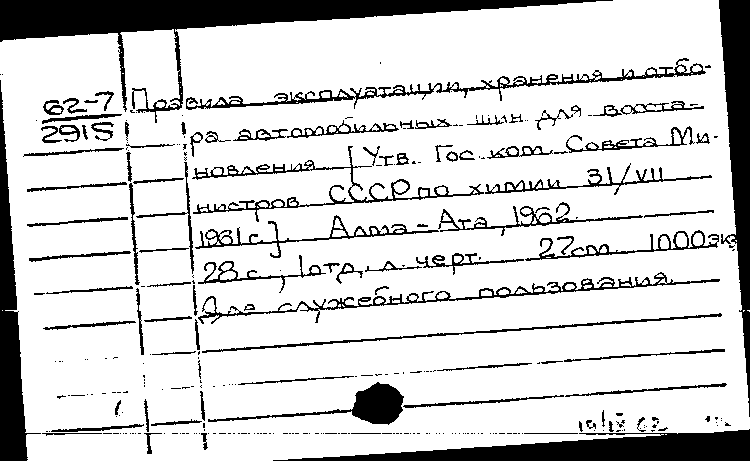 62-7 Правила эксплуатации, хранения и отбо-
2915 ра автомобильных шин для восста-
новления [Утв. Гос. ком. Совета Ми-
нистров СССР по химии 31/VII
1961 г.]. Алма-Ата, 1962.
28 с., 1 отд. л. черт. 27 cm. 1000 экз
Для служебного пользования.
19/IX 62